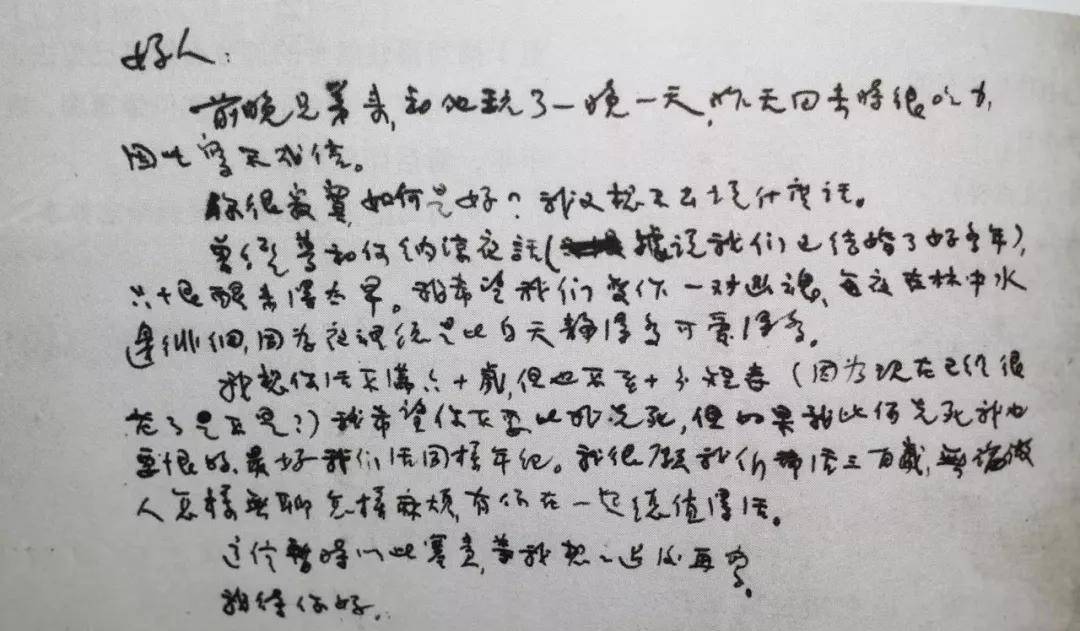 好人：
前晚兄弟来，和他玩了一晚一天，昨天回去时很吃力，
因此写不成信。
你很寂寞，如何是好？我又想不出说什么话。
曾经梦和你纳凉夜话（据说我们已结婚了好多年），
只恨醒来得太早。我希望我们变作一对幽魂，每夜在林中水
边徘徊，因为夜里总是比白天静得多可爱得多。
我想你活不满六十岁，但也不至十分短寿（因为现在已经很
老了是不是？）我希望你不要比我先死，但如果我比你先死我也
要恨的，最好我们活同样年纪。我很愿我们都活三百岁，無論做
人怎样無聊怎样麻烦，有你在一起总值得活。
这信暂时以此塞责，等我想一些后再写。
我待你好。